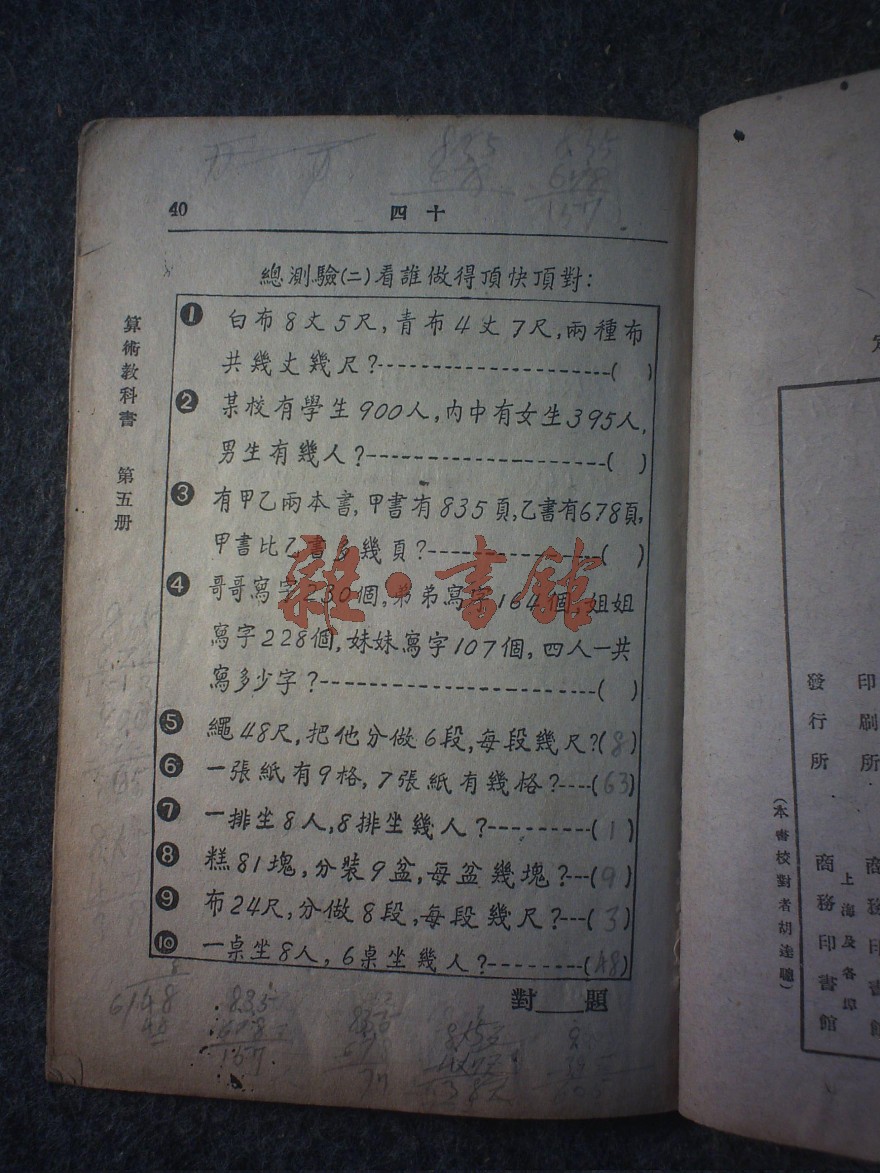 40
四十
總測驗(二)看誰做得頂快頂對:
算術教科書 第五册
❶ 白布8丈5尺,青布4丈7尺,兩種布
共幾丈幾尺?( )
❷ 某校有學生900人,內中有女生395人,
男生有幾人?( )
❸ 有甲乙兩本書,甲書有835頁,乙書有678頁,
甲書比乙書多幾頁?( )
❹ 哥哥寫字230個,弟弟寫字164個,姐姐
寫字228個,妹妹寫字107個,四人一共
寫多少字?( )
❺ 繩48尺,把他分做6段,每段幾尺?(8)
❻ 一張紙有9格,7張紙有幾格?(63)
❼ 一排坐8人,8排坐幾人?(1)
❽ 糕81塊,分裝9盆,每盆幾塊?(9)
❾ 布24尺,分做8段,每段幾尺?(3)
❿ 一桌坐8人,6桌坐幾人?(48)
對___題
雜·書館
835
678
157
835
678
157
6/48
48
印刷所 商務印書館
發行所 商務印書館
上海及各埠
(本書校對者胡達聰)